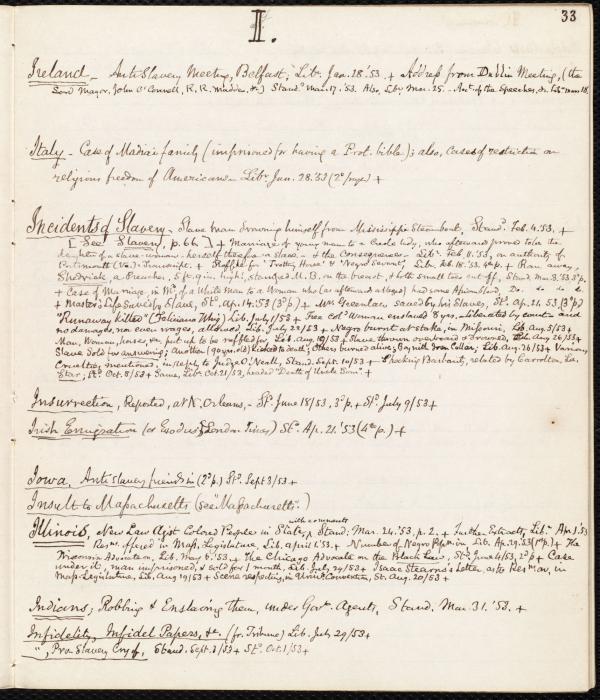 33
I.
Ireland - Anti Slavery Meeting, Belfast, Libr. Jan. 28. '53. + Address from Dublin Meeting, (the
Lord Mayor, John O'Connell, R. R. Madden, &c.) Stand. Mar. 17. '53. Also, Lib. Mar. 25. - of the Speeches, &c. Lib.
Italy - Case of Madiai family (imprisoned for having a Prot. bible); also, Cases of restriction on
religious freedom of Americans - Libr. Jan. 28. 53 (2d page) +
Incidents of Slavery - Slave man drowning himself from Mississippi Steamboat, Stand. Feb. 4. 53. +
[See Slavery, p. 66.] + Marriage of young man to a Creole lady, who afterward proved to be the
daughter of a slave-woman - herself therefore a slave - & the Consequences - Libr. Feb. 11. 53, on authority of
Portsmouth (Va.) Transcript. + Raffle for "Trotting Horse" & "Negro Servant", Lib. 53. + Ran away,
Shedrick, a Preacher, 5 ft. 9 in. high, stamped M. B. on the breast, & both small toes cut off, Stand. Mar. 3. 53. 2d p.
+ Case of Marriage, in of a White Man to a Woman who (as afterward alleged) had some Africanism, Do.
+ Master's Life Saved by Slave, St. Apr. 14. '53 (3d p.) + Mrs. Greenlaw saved by his Slaves, St. Ap. 21. 53, (3d p.)
"Runaway Killed" (Feliciana Whig) Lib. July 1/53 + Free cold. Woman enslaved 8 yrs. - liberated by courts and
no damages, nor even wages, allowed, Lib. July 22/53 + Negro burnt at stake, in Missouri, Lib. Aug. 5/53 +
Man, Woman, horse, &c. put up to be raffled for Lib. Aug. 19/53 + Slave thrown overboard & drowned, Lib. Aug 26/53 +
Slave sold for answering; Another (90 yrs. old) kicked to death; Others burned alive; Boy with Iron Collar; Lib. Aug. 26/53 + Various
Cruelties mentioned, in reply to Judge O'Neall, Stand. Sept. 10/53 + Shocking Barbarity, related by Carrolton, La.
Star, St. Oct. 8/53 + Same, Lib. Oct. 21/53, headed "Death of Uncle Sam". +
Insurrection, Reported, at N. Orleans, - St. June 18/53, 3d p. + St. July 9/53 +
Irish Emigration (or Exodus) (London Times) St. Ap. 21. '53 (4th p.) +
Iowa, Anti slavery friends in (2d p.) St. Sept 3/53 +
Insult to Massachusetts (see "Massachusetts".)
Illinois, New Law agst Colored People in State, with comments Stand. Mar. 24. '53, p. 2. + Further Extracts, Libr. Apr. 1. 53
Resns. offered in Mass. Legislature, Lib. April 1. 53 + Number of Negro Popn. in Lib. Ap. 29. 53 + The
Wisconsin Advocate on, Lib. May 6. '53. + The Chicago Advocate on the Black Law, St. June 4/53, 2d p. + Case
under it, man imprisoned, & sold for 1 month, Lib. July 29/53 + Isaac Stearns's Letter as to Resns. on, in
Mass. Legislature, Lib. Aug 19/53 + Scene respecting, in Univt. Convention, St. Aug. 20/53 +
Indians; Robbing & Enslaving them, under Govt. Agents, Stand. Mar. 31. '53. +
Infidelity, Infidel Papers, &c. (fr. Tribune) Lib. July 29/53 +
" , Pro-Slavery Cry of, Stand. Sept. 3/53 + St. Oct. 1/53 +